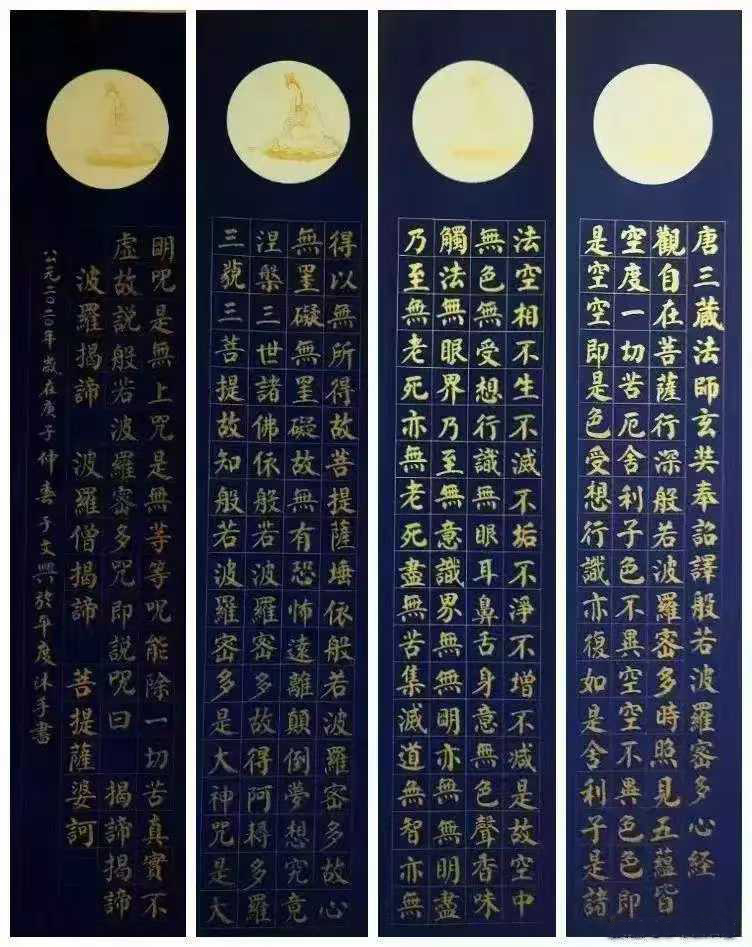 唐三蔵法師玄奘奉詔譯般若波羅密多心経
觀自在菩薩行深般若波羅密多時照見五蘊皆
空度一切苦厄舍利子色不異空空不異色色即
是空空即是色受想行識亦復如是舍利子是諸
法空相不生不滅不垢不淨不增不减是故空中
無色無受想行識無眼耳鼻舌身意無色聲香味
觸法無眼界乃至無意識界無無明亦無無明盡
乃至無老死亦無老死盡無苦集滅道無智亦無
得以無所得故菩提薩埵依般若波羅密多故心
無罣礙無罣礙故無有恐怖遠離顛倒夢想究竟
涅槃三世諸佛依般若波羅密多故得阿耨多羅
三藐三菩提故知般若波羅密多是大神咒是大
明咒是無上咒是無等等呪能除一切苦真實不
虛故説般若波羅密多咒即説呪曰 揭諦揭諦
波羅揭諦 波羅僧揭諦 菩提薩婆訶
公元二0二0年歲在庚子仲春于文興於平度沐手書